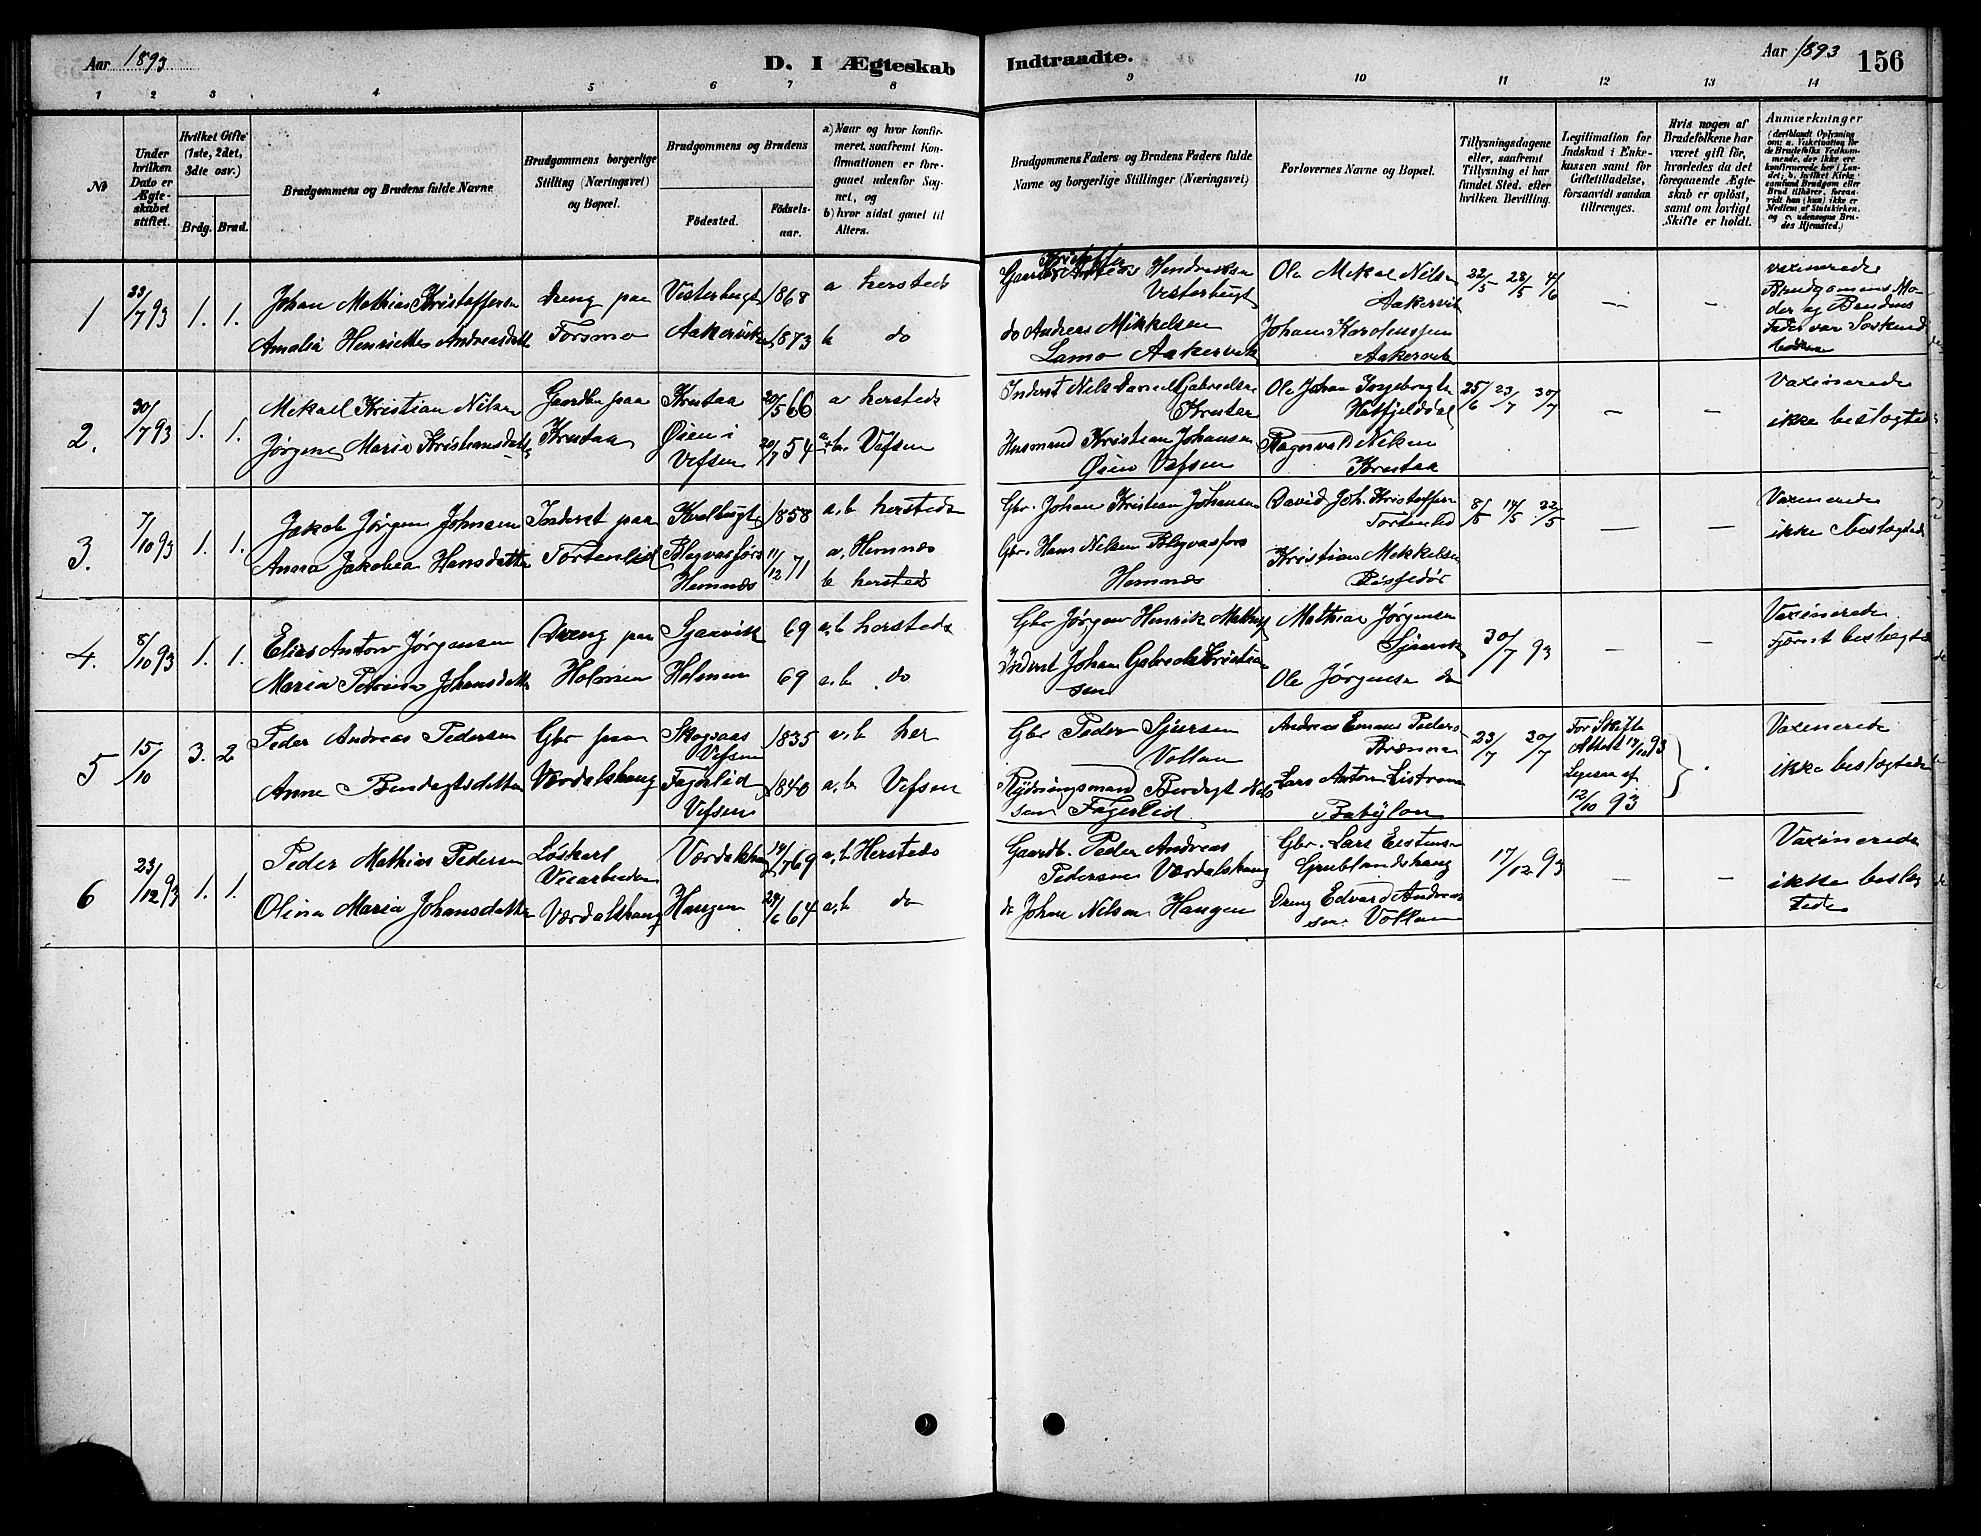 Aar 1893
D. I Ægteskab Indtraadte.
Aar 1893 156
1 2 3 4 5 6 7 8 9 10 11 12 13 14
No
Under hvilken Dato er Ægteskabet stiftet.
Hvilket Gifte (1ste, 2det, 3die osv.)
Brdg. Brud.
Brudgommens og Brudens fulde Navne
Brudgommens borgerlige Stilling (Næringsvei) og Bopæl.
Brudgommens og Brudens
Fødested. Fødsels-aar.
a) Naar og hvor konfirmeret, saafremt Konfirmationen er foregaaet udenfor Sognet, og
b) hvor sidst gaaet til Alters.
Brudgommens Faders og Brudens Faders fulde Navne og borgerlige Stillinger (Næringsvei)
Forlovernes Navne og Bopæl.
Tillysningsdagene eller, saafremt Tillysning ei har fundet Sted, efter hvilken Bevilling.
Legitimation for Indskud i Enkekassen samt for Giftetilladelse, forsaavidt saadan tiltrænges.
Hvis nogen af Brudefolkene har været gift før, hvorledes da det foregaaende Ægteskab er opløst, samt om lovligt Skifte er holdt.
Anmærkninger (deriblandt Oplysning om: a. Vaksination for de Brudefolks Vedkommende, der ikke ere konfirmerede her i Landet; b. hvilket Kirkesamfund Brudgom eller Brud tilhører, forsavidt han (hun) ikke er Medlem af Statskirken, og c. udensogns Brudes Hjemsted.)
1 23/7 93 1. 1.
Johan Mathias Kristoffersen
Amalia Henriette Andreasdatt
Dreng paa Forsmo
Vesterbugt 1868
Aakervik 1873
a hersteds
b do
Kristoffer Hendriksen
Vesterbugt
do Andreas Mikkelsen
Lamo Aakervik
Ole Mikal Nilsen
Aakervik
Johan
Aakervik
22/5 28/5 4/6
— —
vaxinerede
Brudgomens Mo-
der og Brudens
Fader var Søskend
2. 30/7 93 1. 1.
Mikael Kristian Nilsen
Jørgine Maria Kristiansdatte
Gaardbr paa Krutaa
Krutaa 20/5 66
Øien i Vefsen 20/7 54
a hersteds
a, b Vefsen
Inderst Nils Daniel Gabrielsen
Husmand Kristian Johansen
Øien Vefsen
Ole Johan
Hatfjeldal
Ragnvald Nilsen
Krutaa
25/6 23/7 30/7
— —
Vaxinerede
ikke beslægtede
3. 7/10 93 1. 1.
Jakob Jørgen Johnsen
Anna Jakobea Hansdatte
Inderst paa Tortenlid
Kvalbugt 1858
Hemnæs 11/12 71
a, b hersteds
a, Hemnæs
b hersteds
Gbr. Johan Kristian Johansen
Gbr. Hans Nilsen
Hemnæs
David Joh. Kristoffersen
Tortenlid
Kristian Mikkelsen
8/5 14/5 22/5
— —
Vaxinerede
ikke beslægtede
4. 8/10 93 1. 1.
Elias Anton Jørgensen
Maria Petrina Johansdatte
Dreng paa Holmen
Sjaavik 69
Holmen 69
a, b hersteds
a, b do
Gbr Jørgen Henrik
Inderst Johan Gabriel Kristian
sen
Mathias Jørgensen
Sjaavik
Ole Jørgensen do
30/7 93
— —
Vaxinerede
fjernt beslægtede
5 15/10 3. 2
Peder Andreas Pedersen
Anne Bendagtsdatter
Gbr paa Værdalshaug
Skogsaas Vefsen 1835
Fagerlid Vefsen 1840
a, b her
a, b Vefsen
Gbr Peder Sjursen
Vollan
Rydningsmand Bendigt Nils
sen Fagerlid
Andreas Peders
Lars Anton
Babylon
23/7 30/7
For Skifte
Attest 14/10 93
af
12/10 93
Vaxinerede
ikke beslægtede
6 23/12 93 1. 1.
Peder Mathias Pedersen
Olina Maria Johansdatte
Løskarl
Veiarbeider
Værdalshaug
Værdalshaug 14/7 69
Haugen 29/6 64
a, b Hersteds
a, b do
Gaardb. Peder Andreas
Pedersen Værdalshaug
do Johan Nilsen Haugen
Gbr. Lars Eistensen
Grublandshaug
Dreng Edvard Andreas
sen Vollan
17/12 93
— —
Vaxinerede
ikke beslæg
tede